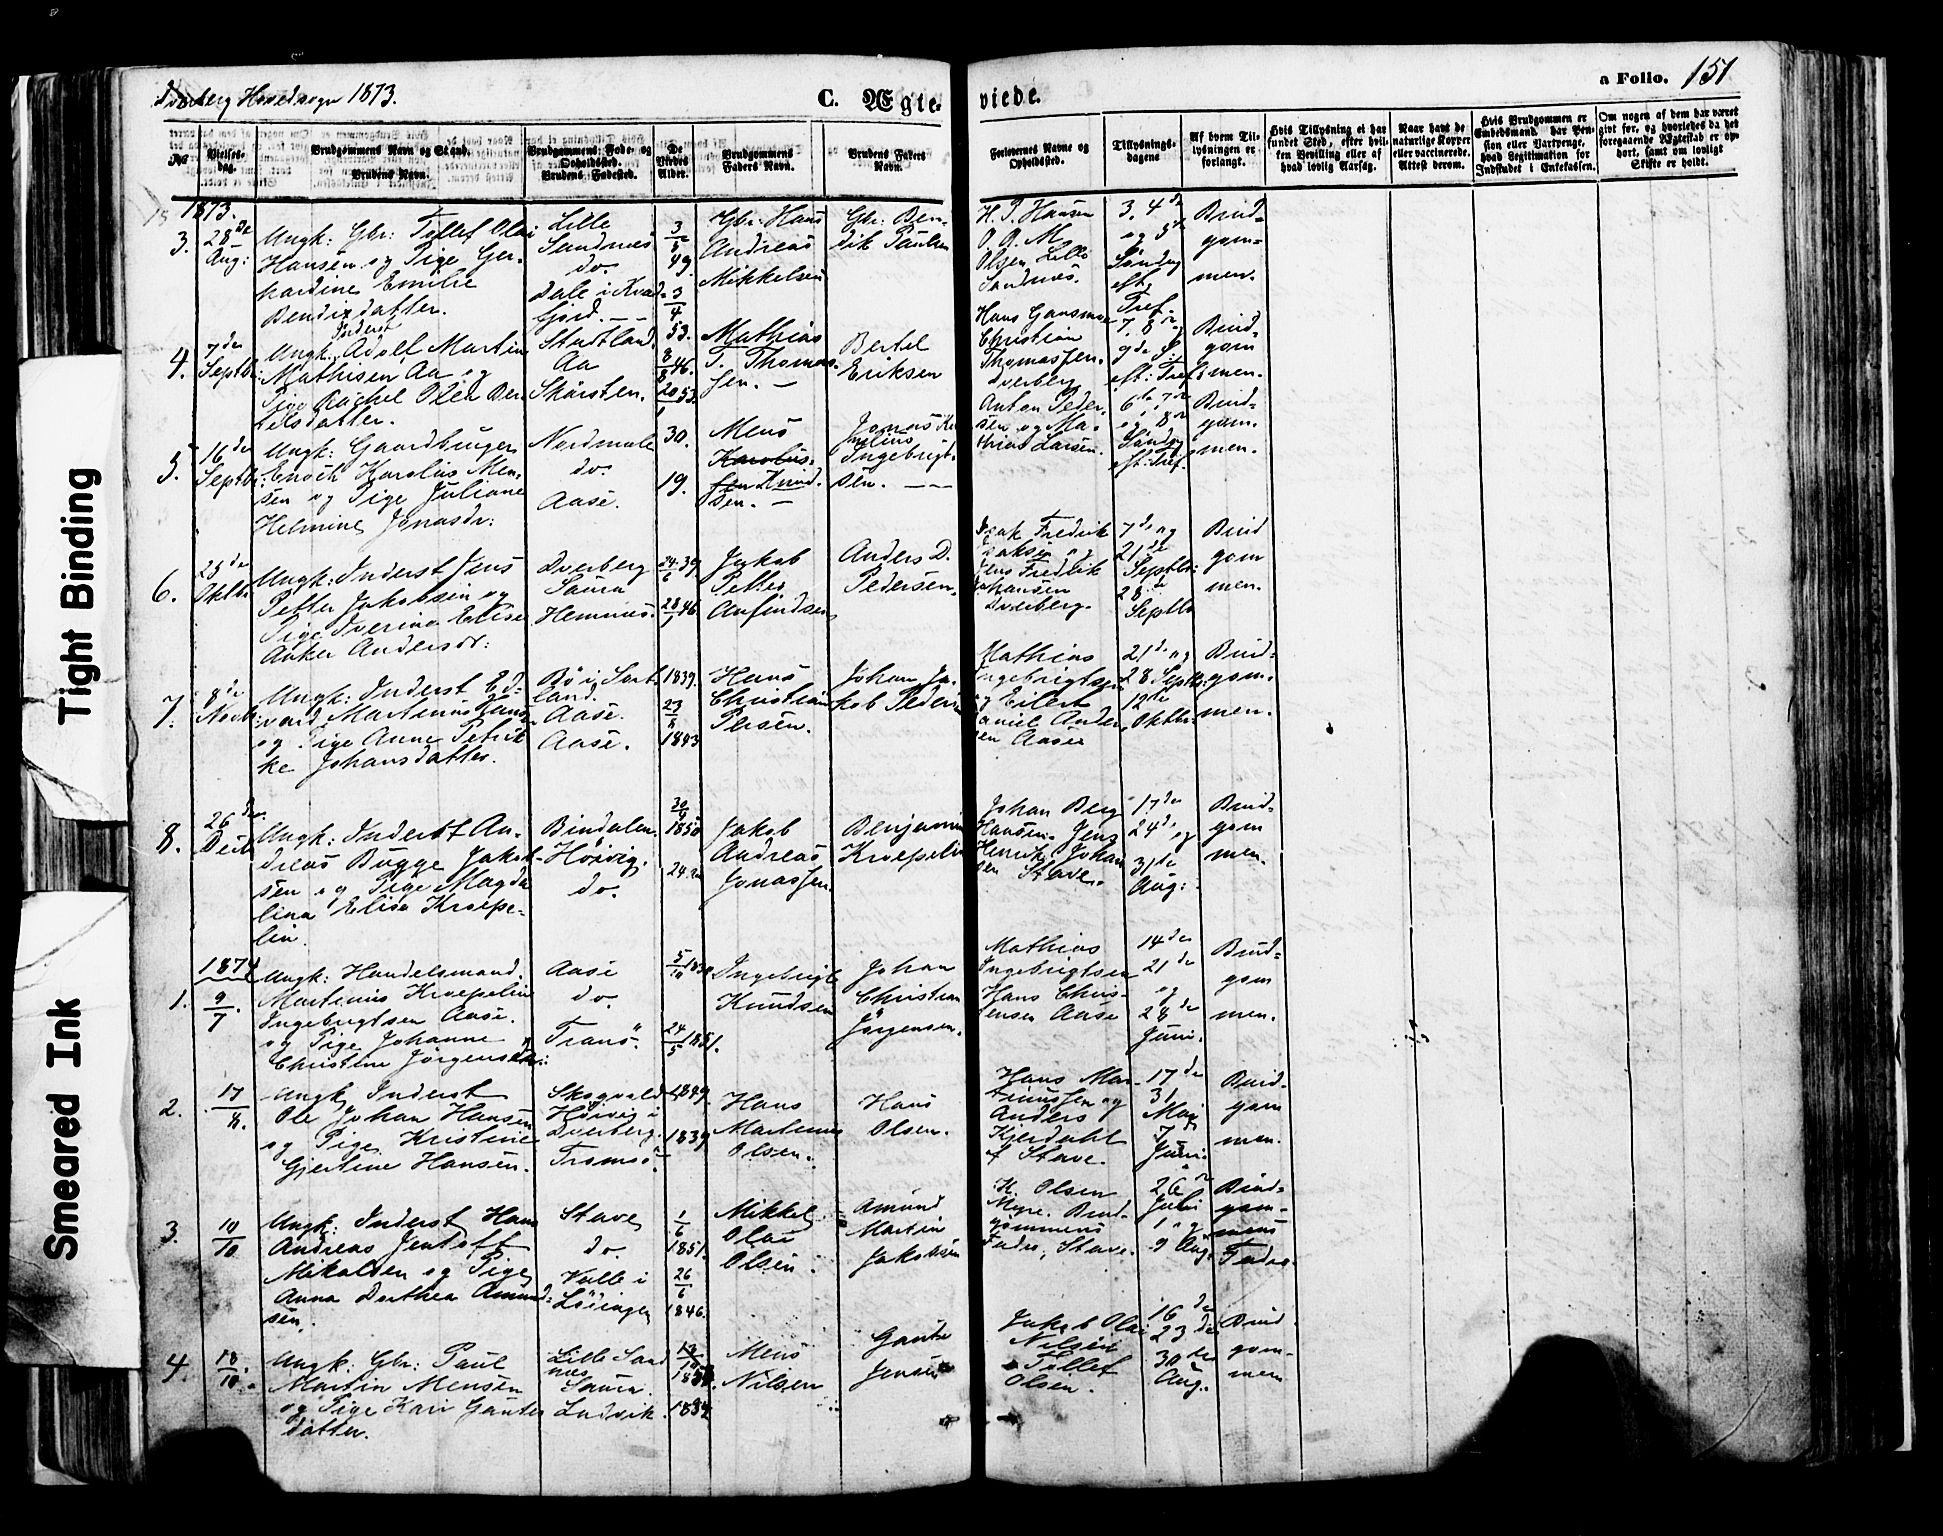 Dverberg Hovedsogn 1873.
C. Ægte-
viede.
a Folio. 151
No
Vielses-
dag.
Brudgommens Navn og Stand.
Brudens Navn.
Brudgommens Føde- og
Opholdssted.
Brudens Fødested.
De
Viedes
Alder.
Brudgommens
Faders Navn.
Brudens Faders
Navn.
Forlovernes Navne og
Opholdssted.
Tillysnings-
dagene
Af hvem Til-
lysningen er
forlangt.
Hvis Tillysning ei har
fundet Sted, efter hvil-
ken Bevilling eller af
hvad lovlig Aarsag.
Naar havt de
naturlige Kopper
eller vaccinerede.
Attest derom.
Hvis Brudgommen er
Embedsmand, har Pen-
sion eller Vartpenge,
hvad Legitimation for
Indskudet i Enkekassen.
Om nogen af dem har været
givt før, og hvorledes da det
foregaaende Ægteskab er op-
hørt, samt om lovligt
Skifte er holdt.
1873.
3.
28de
Aug:
Ungk: Gbr: Tollef Olai
Hansen og Pige Ger-
hardine Emilie
Bendixdatter.
Lille
Sandnes
do.
Dale i Kvæd-
fjord. — —
3
49.
3
4
53.
Gbr: Hans
Andreas
Mikkelsen
Gbr: Ben-
dik Paulsen
H. P. Hansen
O. A. M.
Olsen Lille
Sandnes.
3, 4de
og 5te
Søndag
eft.
Tref.
Brud-
gom-
men.
4.
7de
Septbr:
Inderst
Ungk. Adolf Martin
Mathisen Aa og
Pige Rachel Olea Ber-
telsdatter.
Stadtland.
Aa
Skarsten.
8
8
46.
20
1
53.
Mathias
T. Thomas-
sen. —
Bertel
Eriksen
Hans Gansmoe
Christian
Thomassen.
Dverberg
7, 8de og
9de S:
eft: Tref:
Brud-
gom
men.
5.
16de
Septbr:
Ungk: Gaardbruger
Enoch Karolus Men-
sen og Pige Juliane
Helmine Jonasdr:
Nordmele
do.
Aase.
30.
19.
Mens
Karolus-
sen Knud-
sen. —
Jonas Kor
nelius
Ingebrigt-
sen. — —
Anton Peder-
sen og Ma-
thias Larsen.
6te, 7de
og 8de
Søndag
eft: Tref.
Brud-
gom-
men.
6.
25de
Oktbr
Ungk: Inderst Jens
Petter Jakobsen og
Pige Iverine Elise
Anker Andersdr:
Dverberg
Saura
Hemnes.
24
6
39
28
1
46
Jakob
Petter
Anfindsen
Anders D.
Pedersen.
Isak Fredrik
Isaksen og
Jens Fredrik
Johansen
Dverberg.
7de og
21de
Septbr:
28de
Septbr
Brud
gom
men.
7.
8de
Novbr:
Ungk: Inderst Ed-
vard Martinus Hans-
og Pige Anne Petrik-
ke Johansdatter.
Bø i Sort-
land.
Aase.
Aase.
1839.
23
1843
Hans
Christian
Persen.
Johan Ja-
kob Pedersen
Mathias
Ingebrigtsen
og Eilert
Daniel Ander
sen Aase
21de og
28 Septbr:
12te
Oktbr:
Brud-
gom-
men.
8.
26de
Dcbr
Ungk: Inderst An-
dreas Bugge Jakob-
sen og Pige Magda
lina Elisa Kroepe-
lin.
Bindalen.
Høivig.
do.
30
9
1850
24 Aar
Jakob
Andreas
Jonassen
Benjamin
Kroepelin
Johan Berg
Hansen. Jens
Henrik Johan
sen Stave.
17de
24de og
31de
Aug:
Brud-
gom
men.
1874
1.
9
7
Ungk: Handelsmand.
Martinus Kroepelin
Ingebrigtsen Aase.
og Pige Johanne
Christine Jørgensdr:
Aase
do.
Tranø.
5
10
24
5
1851.
Ingebrigt
Knudsen
Johan
Christian
Jørgensen.
Mathias
Ingebrigtsen
Hans Chris-
tensen Aase
14de
21de
og
28de
Juni.
Brud-
gom
men.
2.
17
Ungk. Inderst
Ole Johan Hansen
og Pige Kristine
Gjertine Hansen.
Skogvold
Høivig i
Dverberg.
Tromsø.
1849.
1839
Hans
Martinus
Olsen.
Hans
Olsen.
Hans Mar-
tinussen og
Anders
Kjerdahl
af Stave.
17de
31
Mai
7
Juni.
Brud-
gom
men.
3.
10
10
Ungk: Inderst Hans
Andreas Jentoft
Mikalsen og Pige
Anna Dorthea Amund-
sen.
Stave
do.
Valle i
Lødingen
1
6
1851.
26
6
1846.
Mikkel
Olai
Olsen.
Amund
Martin
Jakobsen
K. Olsen
Myre. Brud-
gommens
Fader, Stave.
26de
Juli
1 og
9 Aug.
Brud-
gom-
mens
Fader.
4.
18
10.
Ungk: Gbr: Paul
Martin Mensen
og Pige Kari Gautes
datter.
Lille Sand
nes
Saura.
Ladvik.
12
10
Mens
Nilsen
Gaute
Jensen
Jakob Olai
Nilsen
Tollef
Olsen.
16de
23de
30te
Aug.
Brud
gom-
men
Tight Binding
Smeared Ink